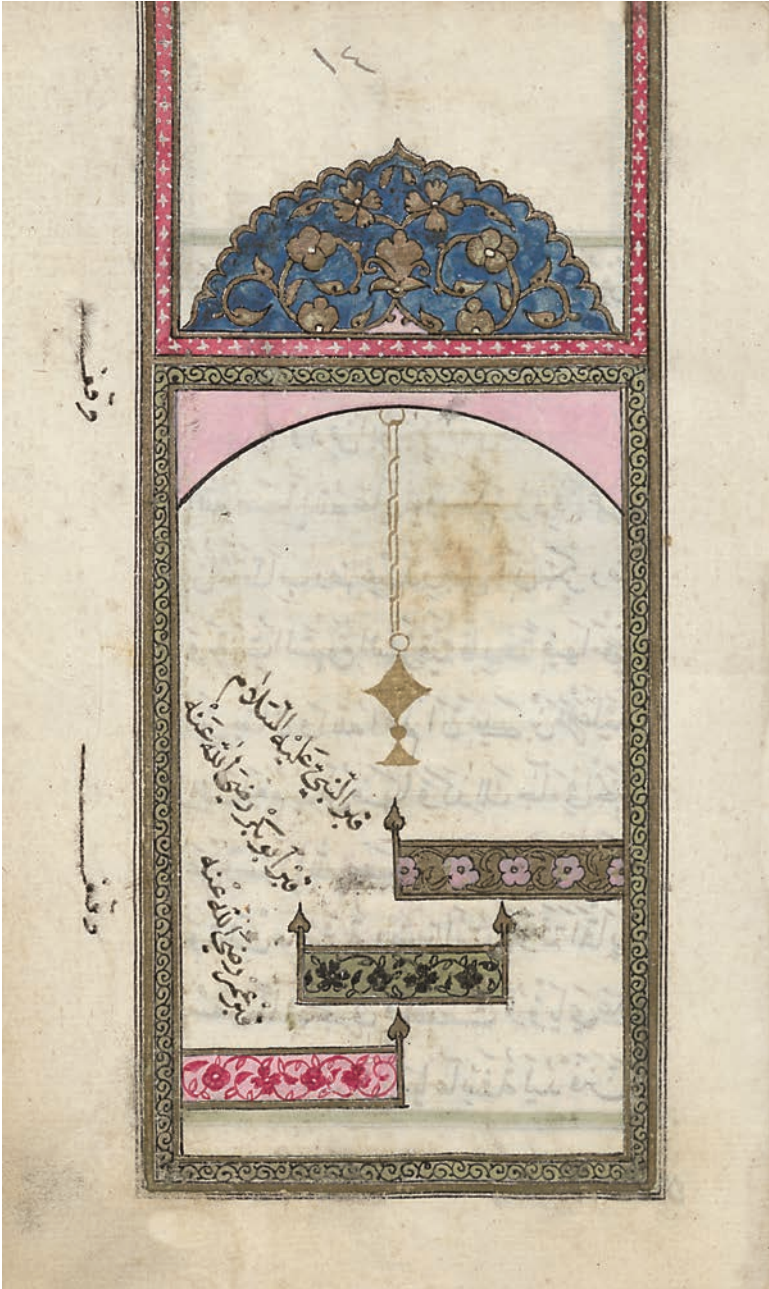 ١٤
وقف
قبر النبي عَلَيْهِ السَّلَام
قبر أبو بكر رَضِيَ اللهُ عَنْه
وقف
قبر عمر رَضِيَ اللهُ عَنْه